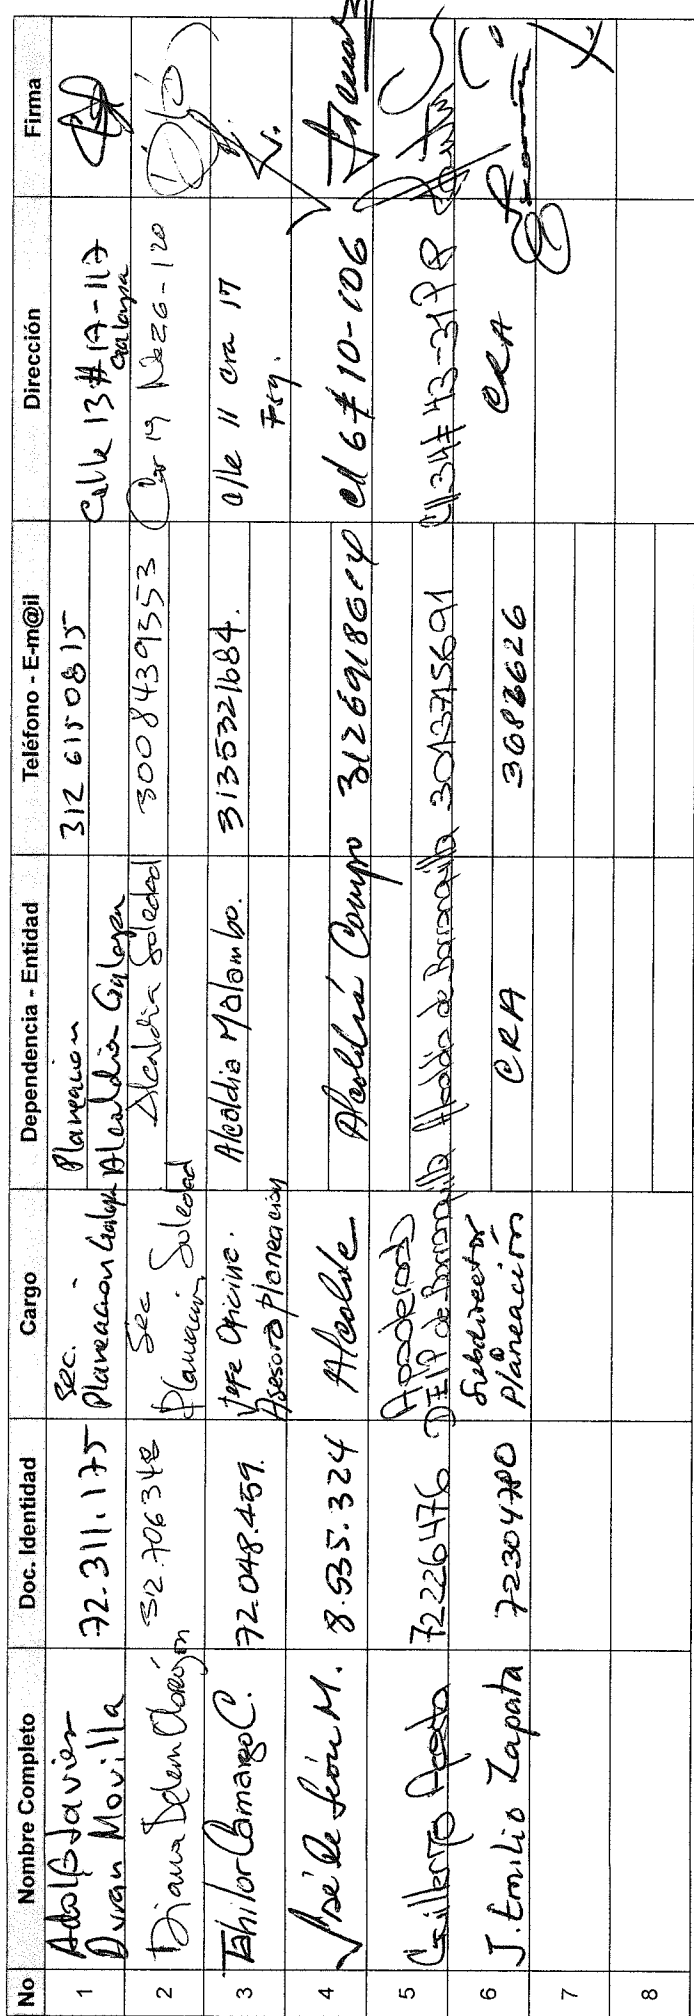 No Nombre Completo Doc. Identidad Cargo Dependencia - Entidad Teléfono - E-m@il Dirección Firma
1 Adolfo Javier Duran Movilla 72.311.175 Sec. Planeación Galapa Planeacion Alcaldia Galapa 312 6150815 Calle 13 # 17-117 Galapa
2 Diana 32.706348 Sec Planeacion Soledad Alcaldia Soledad 3008439553 Car 19 No 26-120
3 Tahilor Camargo C. 72.048.459. Jefe Oficina. Asesora planeacion Alcaldia Malambo. 3135321684. clle 11 cra 17 Esq.
4 José de León M. 8.535.324 Alcalde Alcaldía 10-106
5 Guillermo Acosta 72226476 Apoderado DEIP de Barranquilla Alcaldía de Barranquilla
6 J. Emilio Zapata 72304780 Subdirector Planeación CRA CRA
7
8